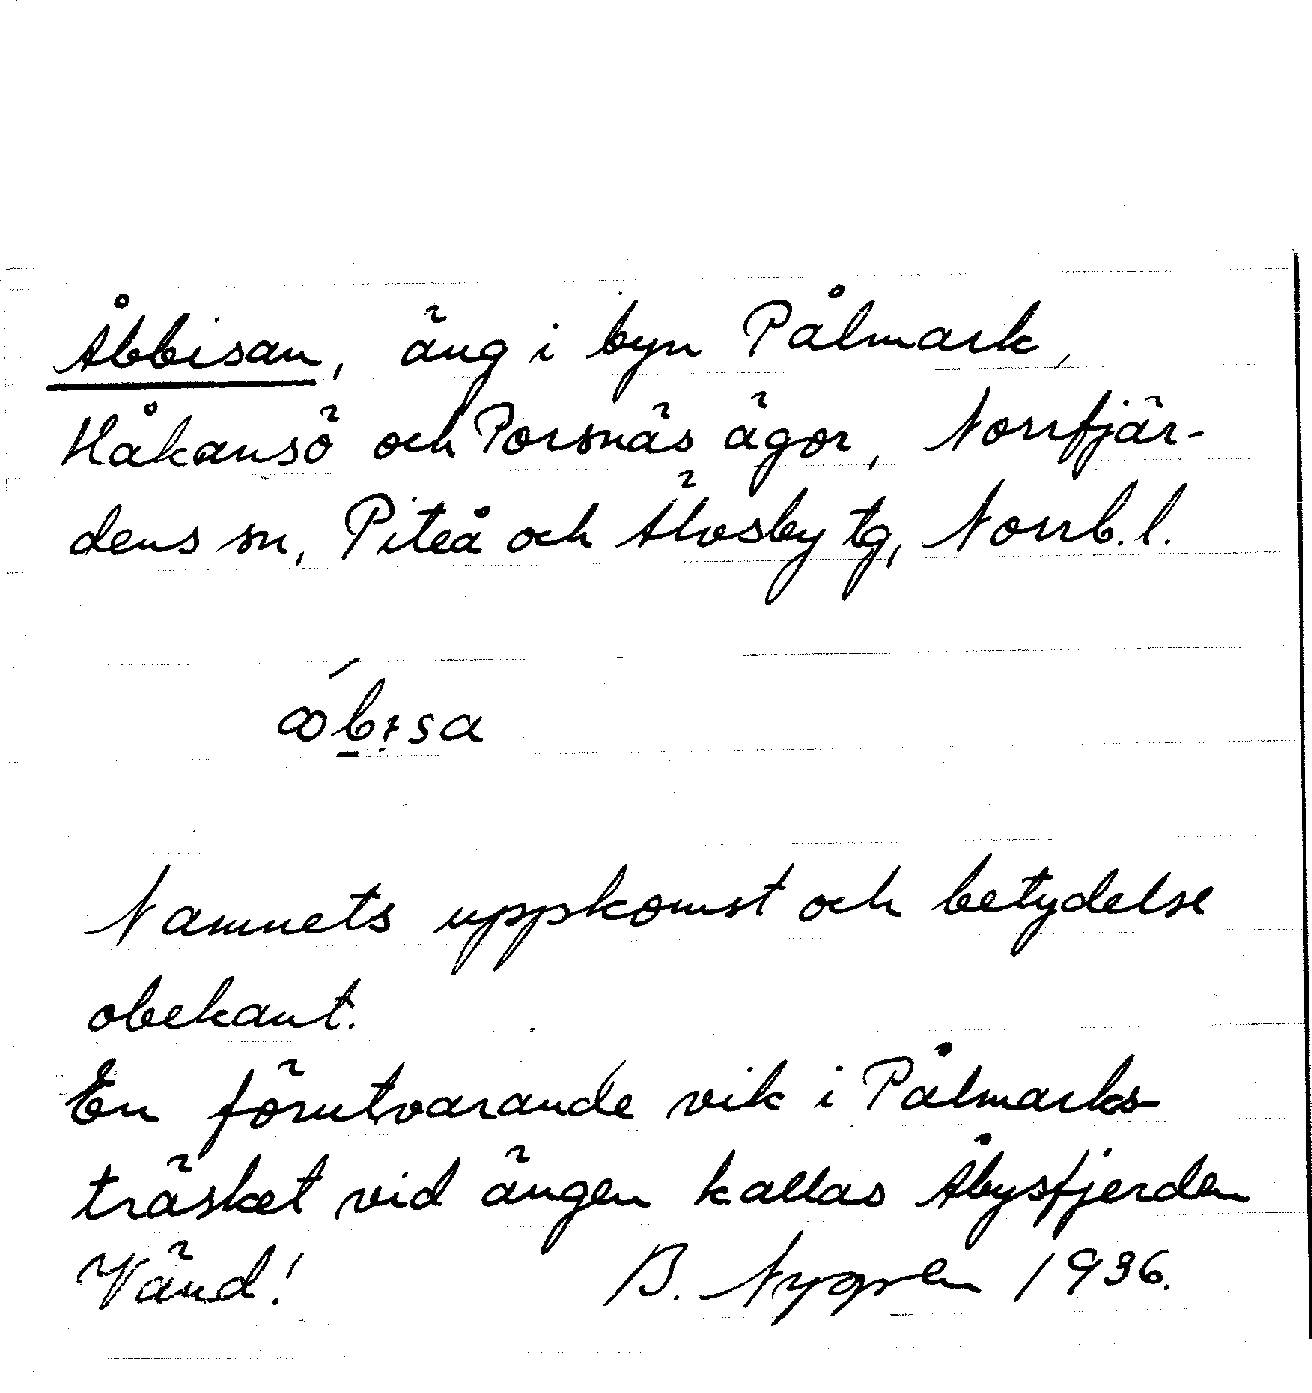 Åbbisan, äng i byn Pålmark,
Håkansö och Porsnäs ägor, Norrfjär-
dens sn, Piteå och Älvsby tg, Norrb. l.
Namnets uppkomst och betydelse
obekant.
En förutvarande vik i Pålmarks-
träsket vid ängen kallas Åbysfjerden
Vänd! B. Nygren 1936.